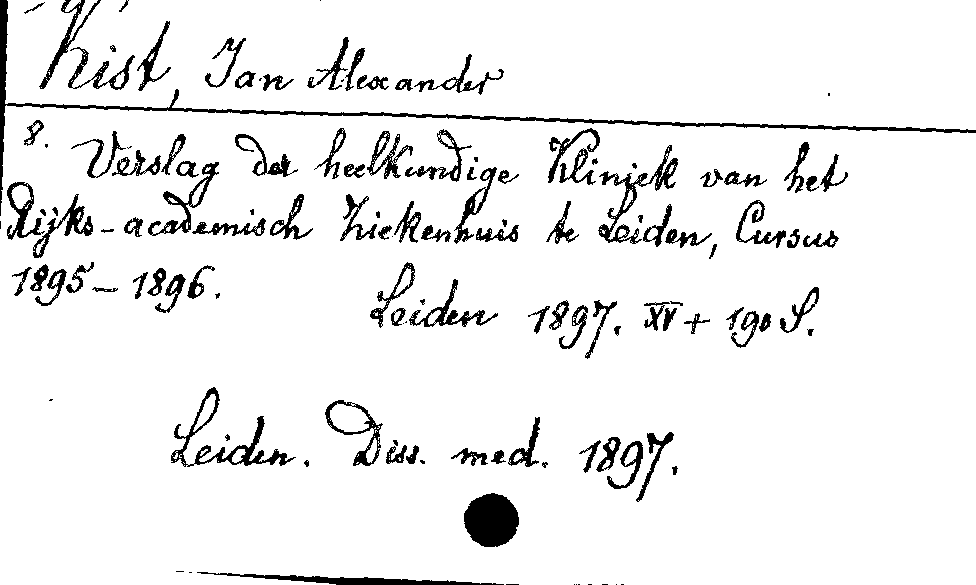 Kist, Jan Alexander
8. Verslag der heelkundige Kliniek van het
Rijks-academisch Ziekenhuis te Leiden, Cursus
1895-1896.
Leiden 1897. XV + 190 S.
Leiden. Diss. med. 1897.